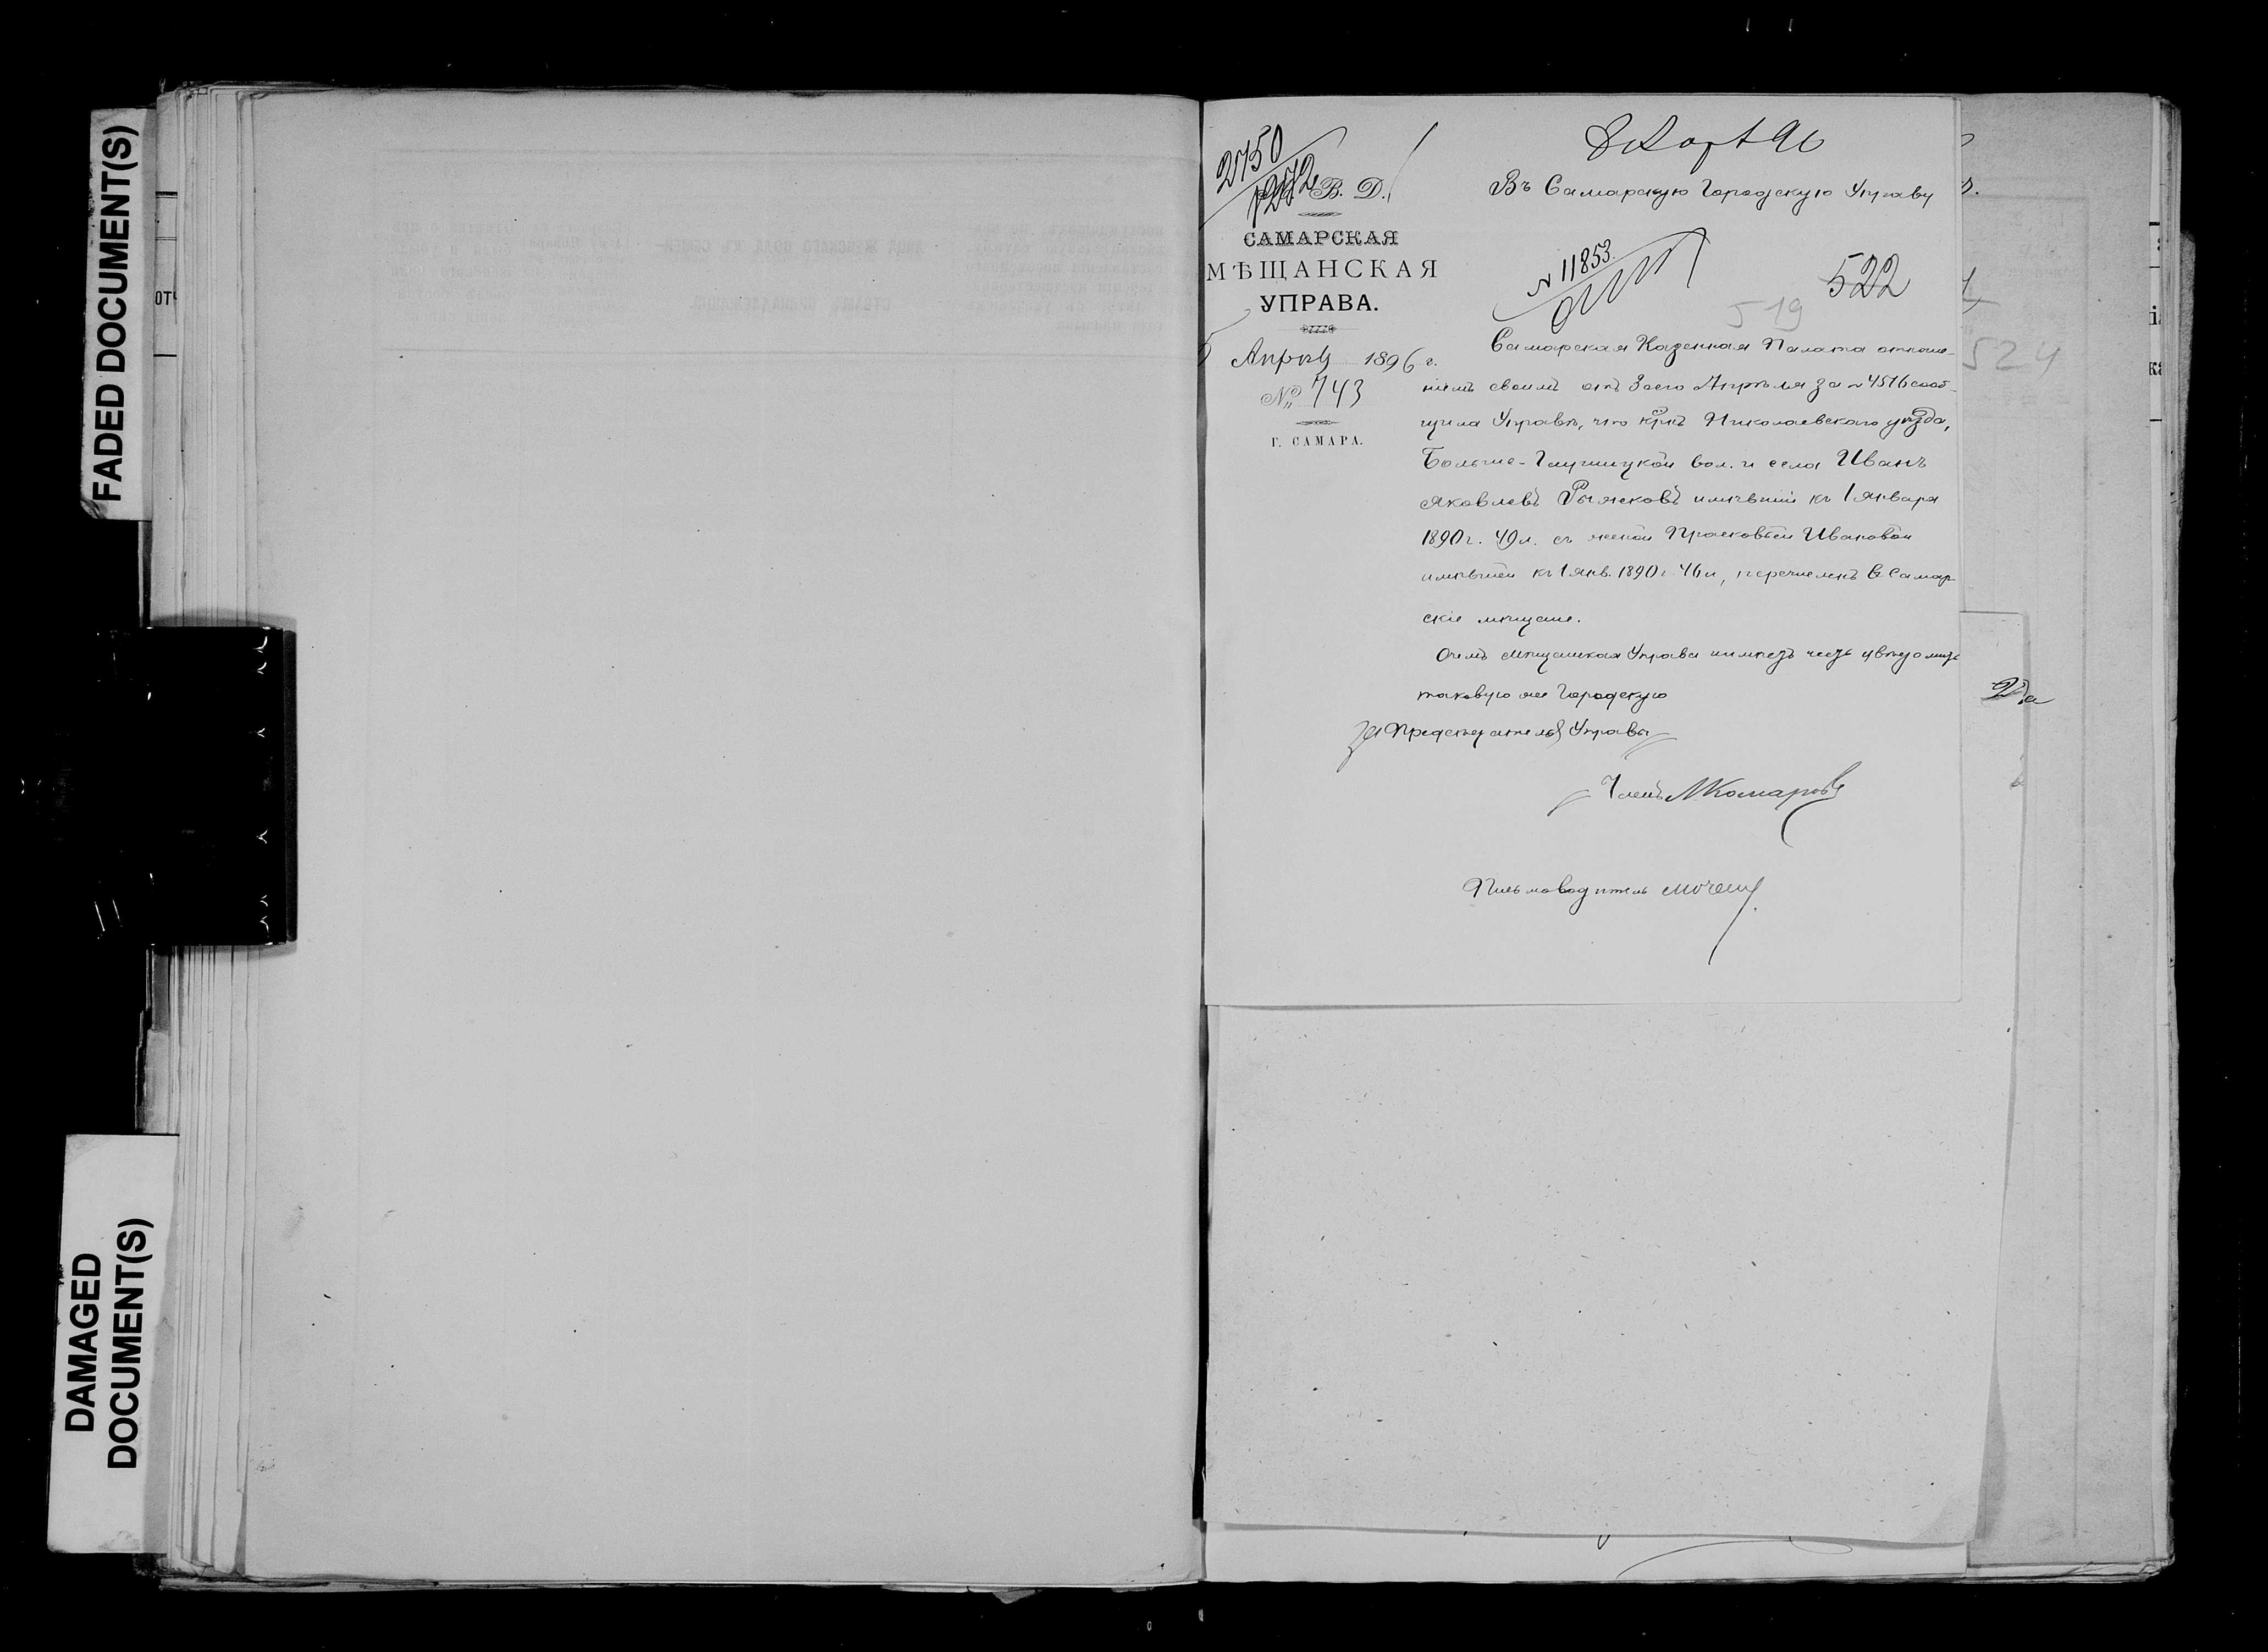 FADED DOCUMENT(S)
DAMAGED
DOCUMENT(S)
2750
В. Д.
САМАРСКАЯ
МѢЩАНСКАЯ
УПРАВА.
1896 г.
№ 743
Г. САМАРА.
Въ Самарскую Городскую Управу
N 11853.
522
519
524
Самарская Казенная Палата отноше-
ніемъ своимъ отъ 3его Апрѣля за N 4516 сооб-
щила Управѣ, что кр̃нъ Николаевскаго уѣзда,
Больше-Глушицкой вол. и села Иванъ
Яковлевъ Рыжковъ имѣвшій къ 1 января
1890 г. 49 л. съ женой Прасковьей Ивановой
имѣвшей къ 1 янв. 1890 г. 46 л, перечисленъ въ Самар-
скіе мѣщане.
О чемъ Мѣщанская Управа имѣетъ честь увѣдомить
таковую же Городскую
За Предсѣдателя Управы
Членъ Комаровъ
Письмоводитель